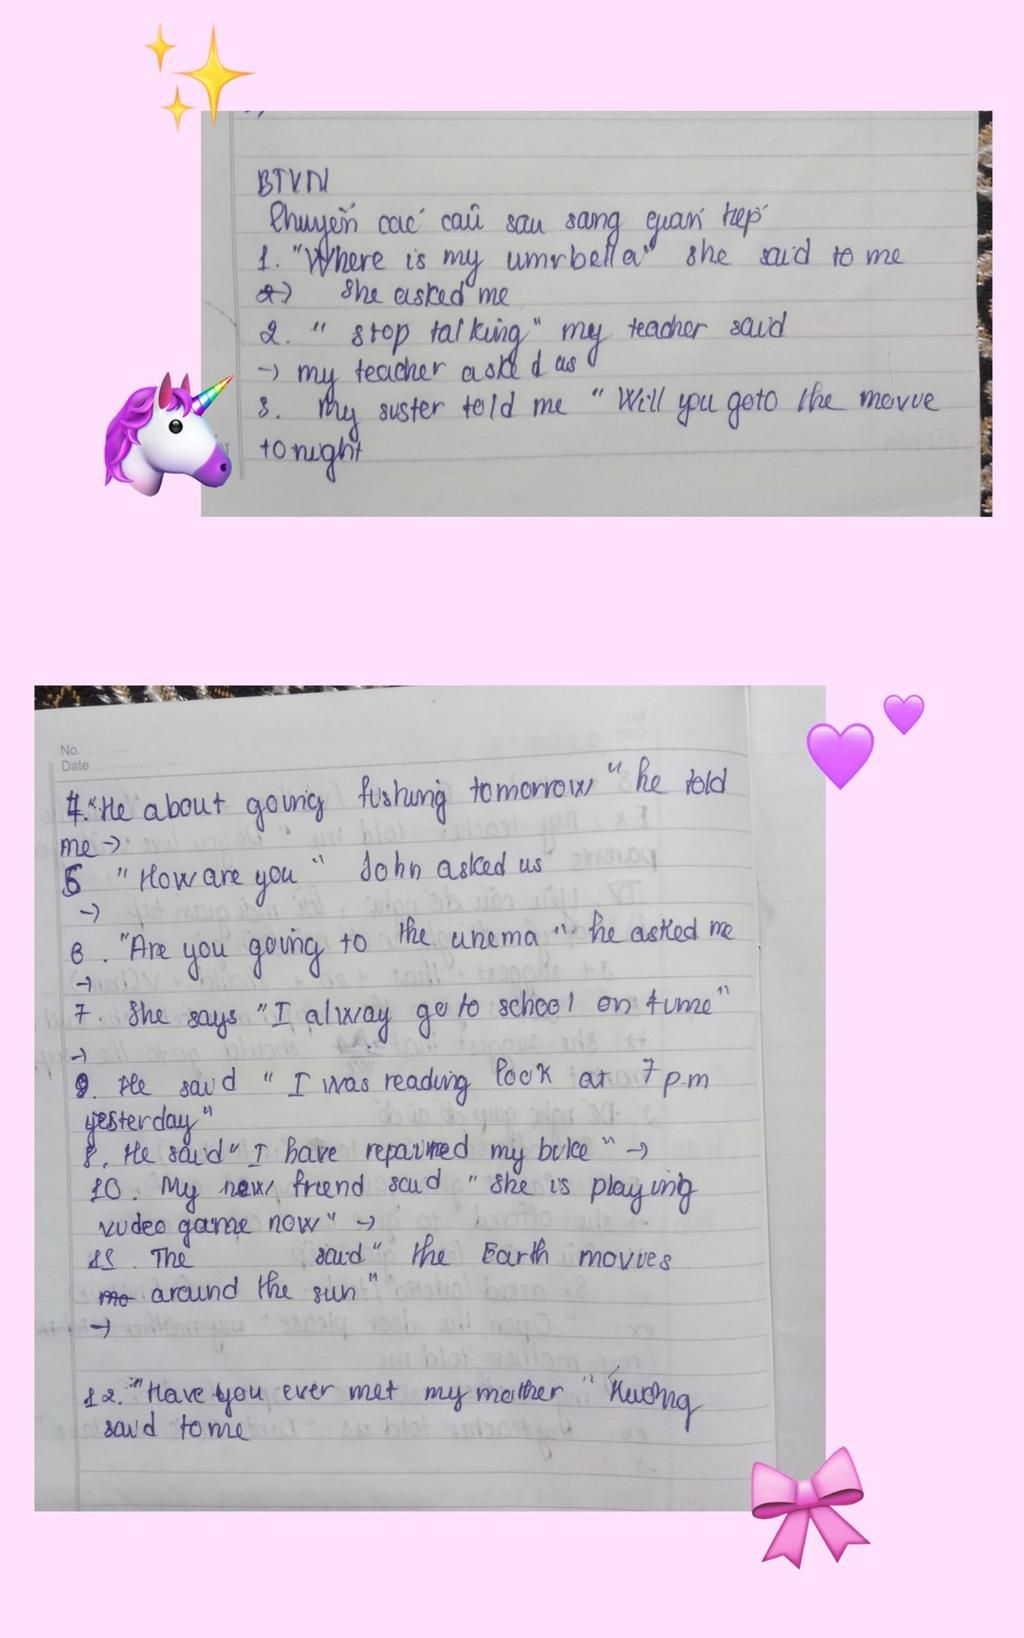 BTVN
Chuyển các câu sau sang quan tiếp
1. "Where is my umrbella" she said to me
→ she asked me
2. " stop talking" my teacher said
→ my teacher asked us
3. My sister told me "Will you goto the movie
tonight
No.
Date
4. "He about going fishing tomorrow" he told
me →
5 "How are you" John asked us
→
6. "Are you going to the cinema" he asked me
→
7. She says "I alway go to school on time"
→
9. He said " I was reading book at 7 p.m
yesterday"
8. He said "I have repaired my bike" →
10. My new friend said "She is playing
video game now" →
11. The said " the Earth movies
around the sun"
→
12. "Have you ever met my mother" Hương
said to me